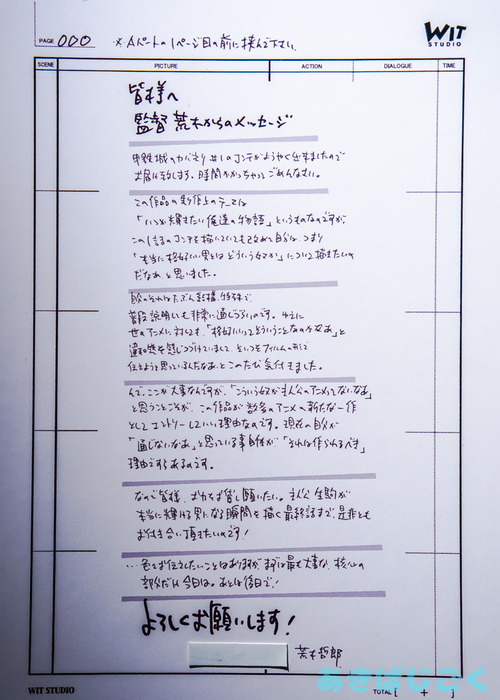 PAGE 000
※Aパートの1ページ目の前に挟んで下さい。
WIT
STUDIO
SCENE PICTURE ACTION DIALOGUE TIME
皆様へ
監督 荒木からのメッセージ
甲鉄城のカバネリ #1のコンテがようやく出来ましたので
お届け致します。時間かかっちゃってごめんなさい。
この作品の製作上のテーマは
「いつか輝きたい俺達の物語」というものなのですが
この1話のコンテを描いていても改めて自分は、つまり
「本当に格好いい男とはどういう奴か」について描きたいの
だなあと思いました。
自分のそれはたぶん
普段説明しても非常に通じづらいのです。ゆえに
世のアニメに対しても、「格好いいってどういうことなのかなあ」と
違和感を感じつづけていまして、
だなあ、とこのたび気付きました。
んで、ここが大事なんですが、「こういう奴が主人公のアニメってないなあ」
と思うことこそが、この作品が数多のアニメの新たな一作
としてエントリーしていい理由なのです。現在の自分が
「通じないなあ」と思っている事自体が「それは作られるべき」
理由ですらあるのです。
なので皆様、お力をお貸し願いたい。主人公 生駒が
本当に輝ける男になる瞬間を描く最終話まで、是非とも
お付き合い頂きたいのです!
…色々お伝えしたいことはありますが、まずは最も大事な、核心の
部分だけ今日は。あとは後日で!
よろしくお願いします!
荒木哲郎
WIT STUDIO
TOTAL [ + ]
あきばじごく